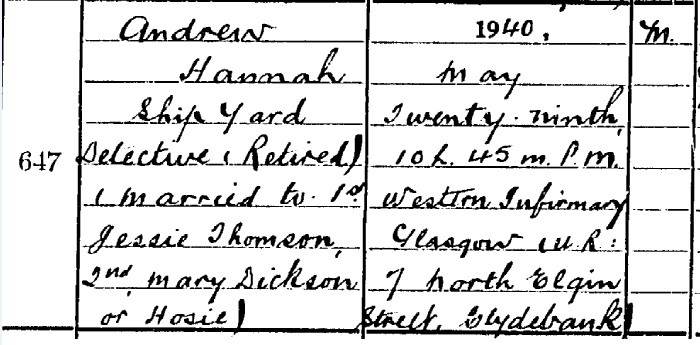 Andrew
Hannah
Ship Yard
Detective (Retired)
(Married to 1st
Jessie Thomson,
2nd, Mary Dickson
or Hosie)
1940,
May
Twenty-ninth,
10 h. 45 m. P.M.
Western Infirmary
Glasgow (U.R:
7 North Elgin
Street, Clydebank)
M.
647